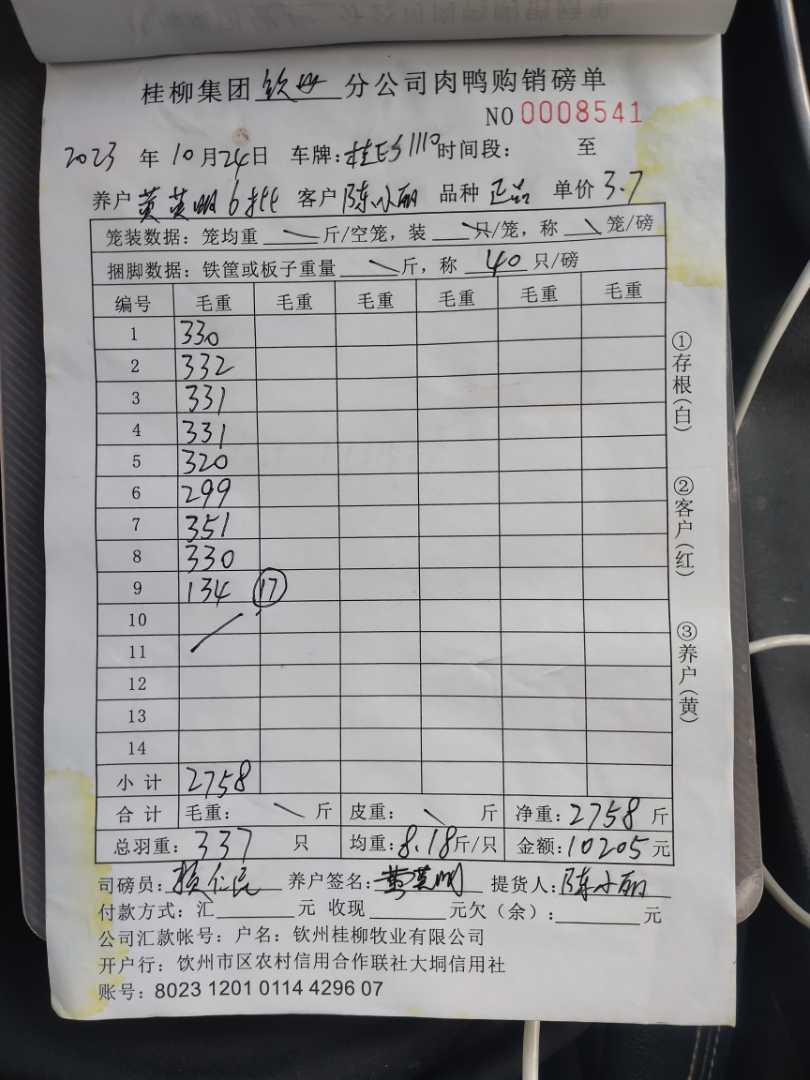 桂柳集团 钦州 分公司肉鸭购销磅单
NO 0008541
2023 年 10 月 24 日 车牌: 1110 时间段: 至
养户 黄英明 6批 客户 陈小丽 品种 正品 单价 3.7
笼装数据: 笼均重 斤/空笼, 装 只/笼, 称 笼/磅
捆脚数据: 铁筐或板子重量 斤, 称 40 只/磅
编号 毛重 毛重 毛重 毛重 毛重 毛重
1 330
2 332
3 331
4 331
5 320
6 299
7 351
8 330
9 134 17
10
11
12
13
14
小计 2758
合计 毛重: 斤 皮重: 斤 净重: 2758 斤
总羽重: 337 只 均重: 8.18 斤/只 金额: 10205 元
司磅员: 养户签名: 黄英明 提货人: 陈小丽
付款方式: 汇 元 收现 元欠(余): 元
公司汇款帐号: 户名: 钦州桂柳牧业有限公司
开户行: 饮州市区农村信用合作联社大垌信用社
账号: 8023 1201 0114 4296 07
①存根(白)
②客户(红)
③养户(黄)